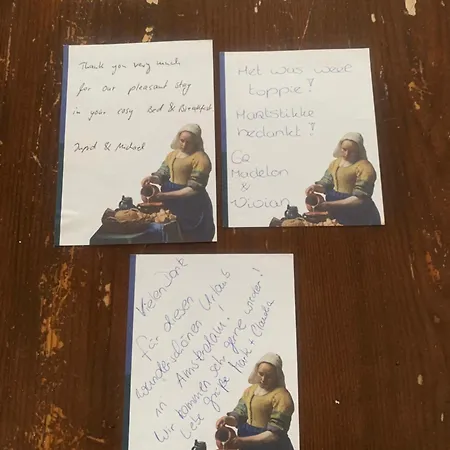 Thank you very much
for our pleasant stay
in your cosy Bed & Breakfast
& Michael
Het was weer
toppie!
Hartstikke
bedankt!
Madelon
&
Vivian
Vielen Dank
für diesen
wunderschönen Urlaub
in Amsterdam!
Wir kommen sehr gerne wieder!
Liebe Grüße + Claudia